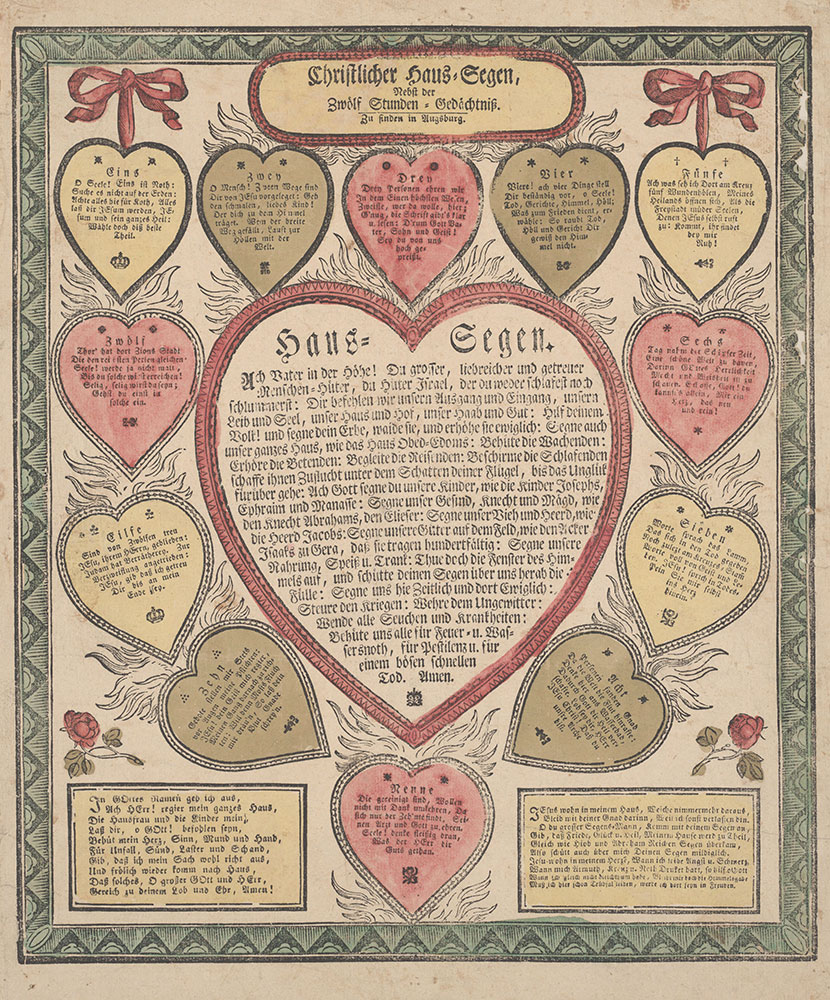 Christlicher Haus-Segen,
Nebst der
Zwölf Stunden-Gedächtniß.
Zu finden in Augsburg.
Eins
O Seele! Eins ist Noth:
Suche es nicht auf der Erden:
Achte alles für Koth, Alles
laß dir JEsum werden, JE-
sum und sein ganzes Heil:
Wähle doch diß beste
Theil.
Zwey
O Mensch! Zween Wege sind
Dir von JEsu vorgeleget: Geh
den schmalen, liebes Kind!
Der dich zu den Himmel
träget. Von der breite
Weg abfällt, Lauft zur
Höllen mit der
Welt.
Drey
Drey Personen ehren wir
In dem Einen höchsten Wesen,
Zweifle, wer da wolle, hier;
G'nug, die Schrift gibt's klar
u. lesen: Drum Gott Va-
ter, Sohn und Geist!
Sey du von uns
hoch ge-
preißt.
Vier
Vier! ach vier Dinge stell
Dir beständig vor, o Seele!
Tod, Gerichte, Himmel, Höll;
Was zum Frieden dient, er-
wähle: So raubt Tod,
Höll und Gericht Dir
gewiß den Him-
mel nicht.
Fünfe
Ach was seh ich Dort am Kreuz
fünf Wundenhölen, Meines
Heilands öffnen sich, Als die
Freystadt müder Seelen,
Denen JEsus selbst ruft
zu: Kommt, ihr findet
bey mir
Ruh!
Zwölf
Thor' hat dort Zions Stadt
Die den reinsten Perlen gleichen-
Seele! werde ja nicht matt,
Bis du solche wirst erreichen!
Selig, selig wirst du seyn;
Gehst du einst in
solche ein.
Haus- Segen.
Ach Vater in der Höhe! Du grosser, liebreicher und getreuer
Menschen-Hüter, du Hüter Israel, der du weder schlafest noch
schlummerst: Dir befehlen wir unsern Ausgang und Eingang, unsern
Leib und Seel, unser Haus und Hof, unser Haab und Gut: Hilf deinem
Volk! und segne dein Erbe, waide sie, und erhöhe sie ewiglich: Segne auch
unser ganzes Haus, wie das Haus Obed-Edoms: Behüte die Wachenden:
Erhöre die Betenden: Begleite die Reisenden: Beschirme die Schlafenden
schaffe ihnen Zuflucht unter dem Schatten deiner Flügel, bis das Unglük
fürüber gehe: Ach Gott segne du unsere Kinder, wie die Kinder Josephs,
Ephraim und Manasse: Segne unser Gesind, Knecht und Mägd, wie
den Knecht Abrahams, den Elieser: Segne unser Vieh und Heerd, wie
die Heerd Jacobs: Segne unsere Güter auf dem Feld, wie den Acker
Isaaks zu Gera, daß sie tragen hundertfältig: Segne unsere
Nahrung, Speiß u. Trank: Thue doch die Fenster des Him-
mels auf, und schütte deinen Segen über uns herab die
Fülle: Segne uns hie Zeitlich und dort Ewiglich:
Steure den Kriegen: Wehre dem Ungewitter:
Wende alle Seuchen und Krankheiten:
Behüte uns alle für Feuer- u. Was-
sersnoth, für Pestilenz u. für
einem bösen schnellen
Tod. Amen.
Sechs
Tag nahm der Schöpfer Zeit,
Eine schöne Welt zu bauen,
Darinn GOttes Herrlichkeit
Macht und Weisheit ist zu
schauen. Schaffe, Gott! du
kannst's allein, Mir ein
Herz, das neu
und rein!
Eilfe
Sind von Zwölfen treu
JEsu, ihrem HErrn, geblieben:
Judam hat Verrätherey, Zur
Verzweiflung angetrieben:
JEsu, gib daß ich getreu
Dir bis an mein
Ende sey.
Sieben
Worte sprach das Lamm,
Das sich in den Tod gegeben
Noch zuletzt am Kreuzes Stamm
Worte voller Geist und Le-
ben, JEsu! sprich in Todes-
Pein Sie mir selbst
ins Herz
hinein.
Zehn
Acht
Nenne
Die gereinigt sind, Wollen
nicht mit Dank umkehren, Da
sich nur der Zeh'nte findt, Sei-
nen Arzt und Gott zu ehren.
Seele! denke fleißig dran,
Was der HErr dir
Guts gethan.
In GOttes Namen geh ich aus,
Ach HErr! regier mein ganzes Haus,
Die Hausfrau und die Kinder mein,
Laß dir, o GOtt! befohlen seyn,
Behüt mein Herz, Sinn, Mund und Hand,
Für Unfall, Sünd, Laster und Schand,
Gib, daß ich mein Sach wohl richt aus,
Und frölich wieder komm nach Haus,
Daß solches, O großer GOtt und HErr,
Gereich zu deinem Lob und Ehr, Amen!
JEsus wohn in meinem Haus, Weiche nimmermehr daraus,
Bleib mit deiner Gnad darinn, Weil ich sonst verlassen bin.
O du großer Segens-Mann, Komm mit deinem Segen an,
Gib, daß Friede, Glück u. Heil, Meinem Hause werd zu Theil,
Gleich wie Hiob und Abraham Reichen Segen überkam,
Also schütt auch über mich Deinen Segen mildiglich.
Jesu wohn in meinem Herz, Wann ich leide Angst u. Schmerz,
Wann mich Armuth, Kreuz u. Noth Drucket hart, so hilf o Gott